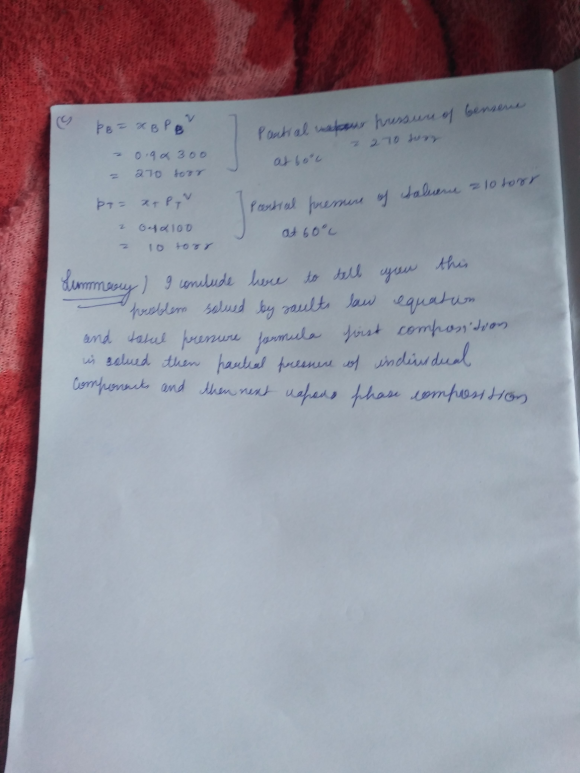 (c) PB = xB PB^v
= 0.9 x 300
= 270 torr
Partial pressure of benzene = 270 torr
at 60°C
PT = xT PT^v
= 0.1 x 100
= 10 torr
Partial pressure of toluene = 10 torr
at 60°C
Summary) I conclude here to tell you this
problem solved by raults law equation
and total pressure formula first composition
is solved then partial pressure of individual
Components and then next phase composition